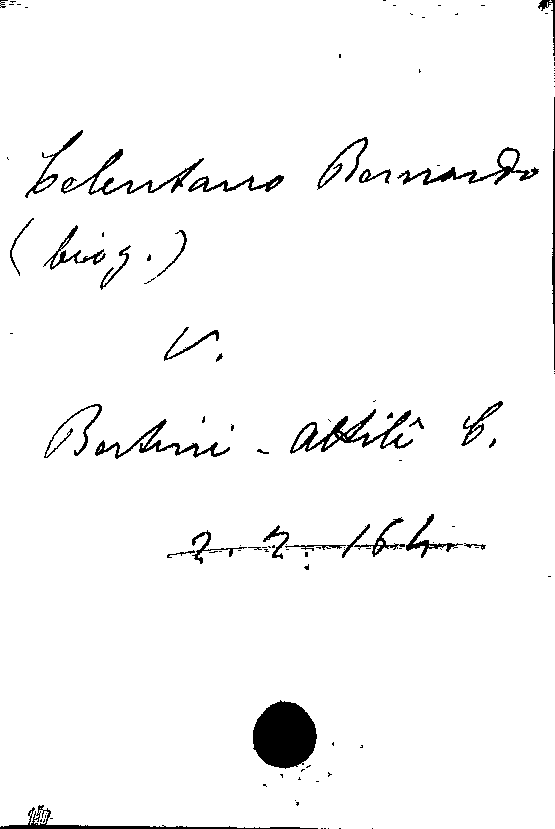 Celentano Bernardo
(biog.)
V.
Bertini - Attili C.
2. 2. 164.